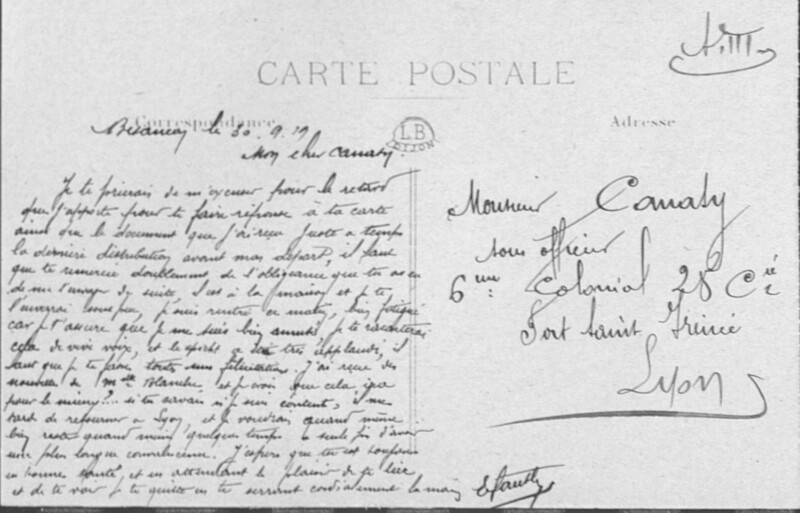 A.III
CARTE POSTALE
Correspondance
Adresse
LB
DIJON
Besançon le 30.9.19
Mon cher Canaty.
Je te prierais de m'excuser pour le retard
que j'apporte pour te faire réponse à ta carte
ainsi que le document que j'ai reçu juste à temps
la dernière distribution avant mon départ, il faut
que te remercie doublement de l'obligeance que tu as eu
de me l'envoyer de suite. Il est à la maison et je te
l'enverrai sous peu, je suis rentré ce matin, bien fatigué
car je t'assure que je me suis bien amusé je te raconterai
cela de vive voix, et le sport a été très applaudi, il
faut que je te fasse toute mes félicitations. J'ai reçu des
nouvelles de Mlle Blanche et je vois que cela ira
pour le mieux, si tu savais si je suis content, il me
tard de retourner à Lyon, et je voudrais quand même
bien rester quand même quelques temps a seule fin d'avoir
une plus longue convalescence. J'espère que tu est toujours
en bonne santé, et en attendant le plaisir de te lire
et de te voir je te quitte en te serrant cordialement la main
Monsieur Canaty
sous officier
6me Colonial 28 Cie
Fort Saint Irénée
Lyon